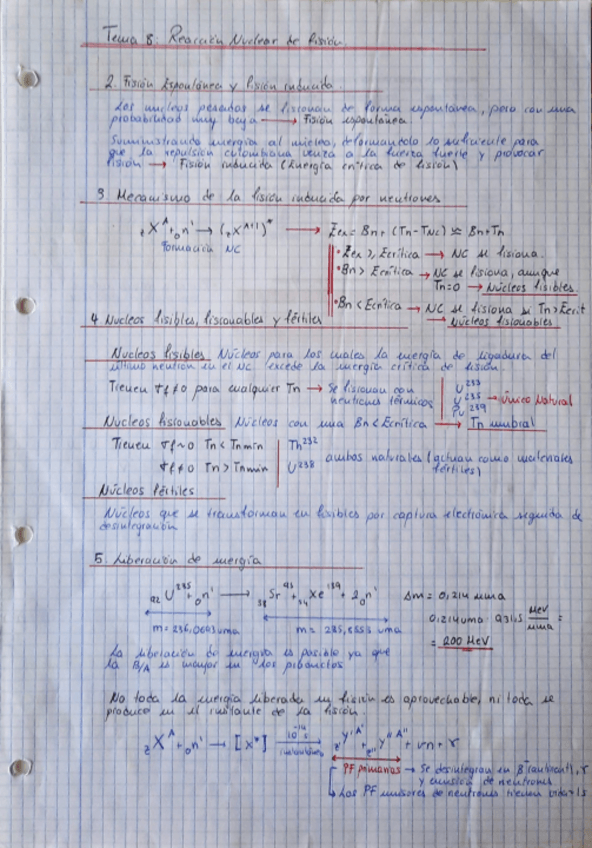 Tema 8: Reacción Nuclear de Fisión.
2. Fisión Espontánea y Fisión inducida.
Los núcleos pesados se fisionan de forma espontánea, pero con una
probabilidad muy baja → Fisión espontánea
Suministrando energía al núcleo, deformandolo lo suficiente para
que la repulsión culombiana venza a la fuerza fuerte y provocar
fisión → Fisión inducida (Energía crítica de fisión)
3 Mecanismo de la fisión inducida por neutrones
zX^A + ₀n¹ → (zX^A+1)* → Eex = Bn + (Tn - TNC) ≃ Bn + Tn
Formación NC
• Eex ≥ Ecrítica → NC se fisiona.
• Bn > Ecrítica → NC se fisiona, aunque
Tn=0 → Núcleos fisibles.
• Bn < Ecrítica → NC se fisiona si Tn > Ecrit
→ Núcleos fisionables.
4 Nucleos fisibles, fisionables y fértiles
Nucleos fisibles Núcleos para los cuales la energía de ligadura del
último neutron en el NC excede la energía crítica de fisión.
Tienen σf ≠ 0 para cualquier Tn → Se fisionan con
neutrones térmicos
U²³³
U²³⁵ → Único Natural
Pu²³⁹
Nucleos fisionables Núcleos con una Bn < Ecrítica → Tn umbral
Tienen σf ~ 0 Tn < Tnmin
σf ≠ 0 Tn > Tnmin
Th²³²
U²³⁸
ambos naturales (actuan como materiales
fértiles)
Núcleos fértiles
Núcleos que se transforman en fisibles por captura electrónica seguida de
desintegración
5. Liberación de energía
₉₂U²³⁵ + ₀n¹ → ₃₈Sr⁹⁵ + ₅₄Xe¹³⁹ + 2₀n¹ Δm = 0,214 uma
m = 236,0043 uma
0,214 uma · 931,5 MeV/uma =
= 200 MeV
La liberación de energía es posible ya que
la B/A es mayor en los productos
No toda la energía liberada en fisión es aprovechable, ni toda se
produce en el instante de la fisión.
zX^A + ₀n¹ → [X*] → 10⁻¹⁴ s z'Y'^A' + z''Y''^A'' + νn + γ
PF primarios → Se desintegran en
y emisión de neutrones
→ Los PF emisores de neutrones tienen